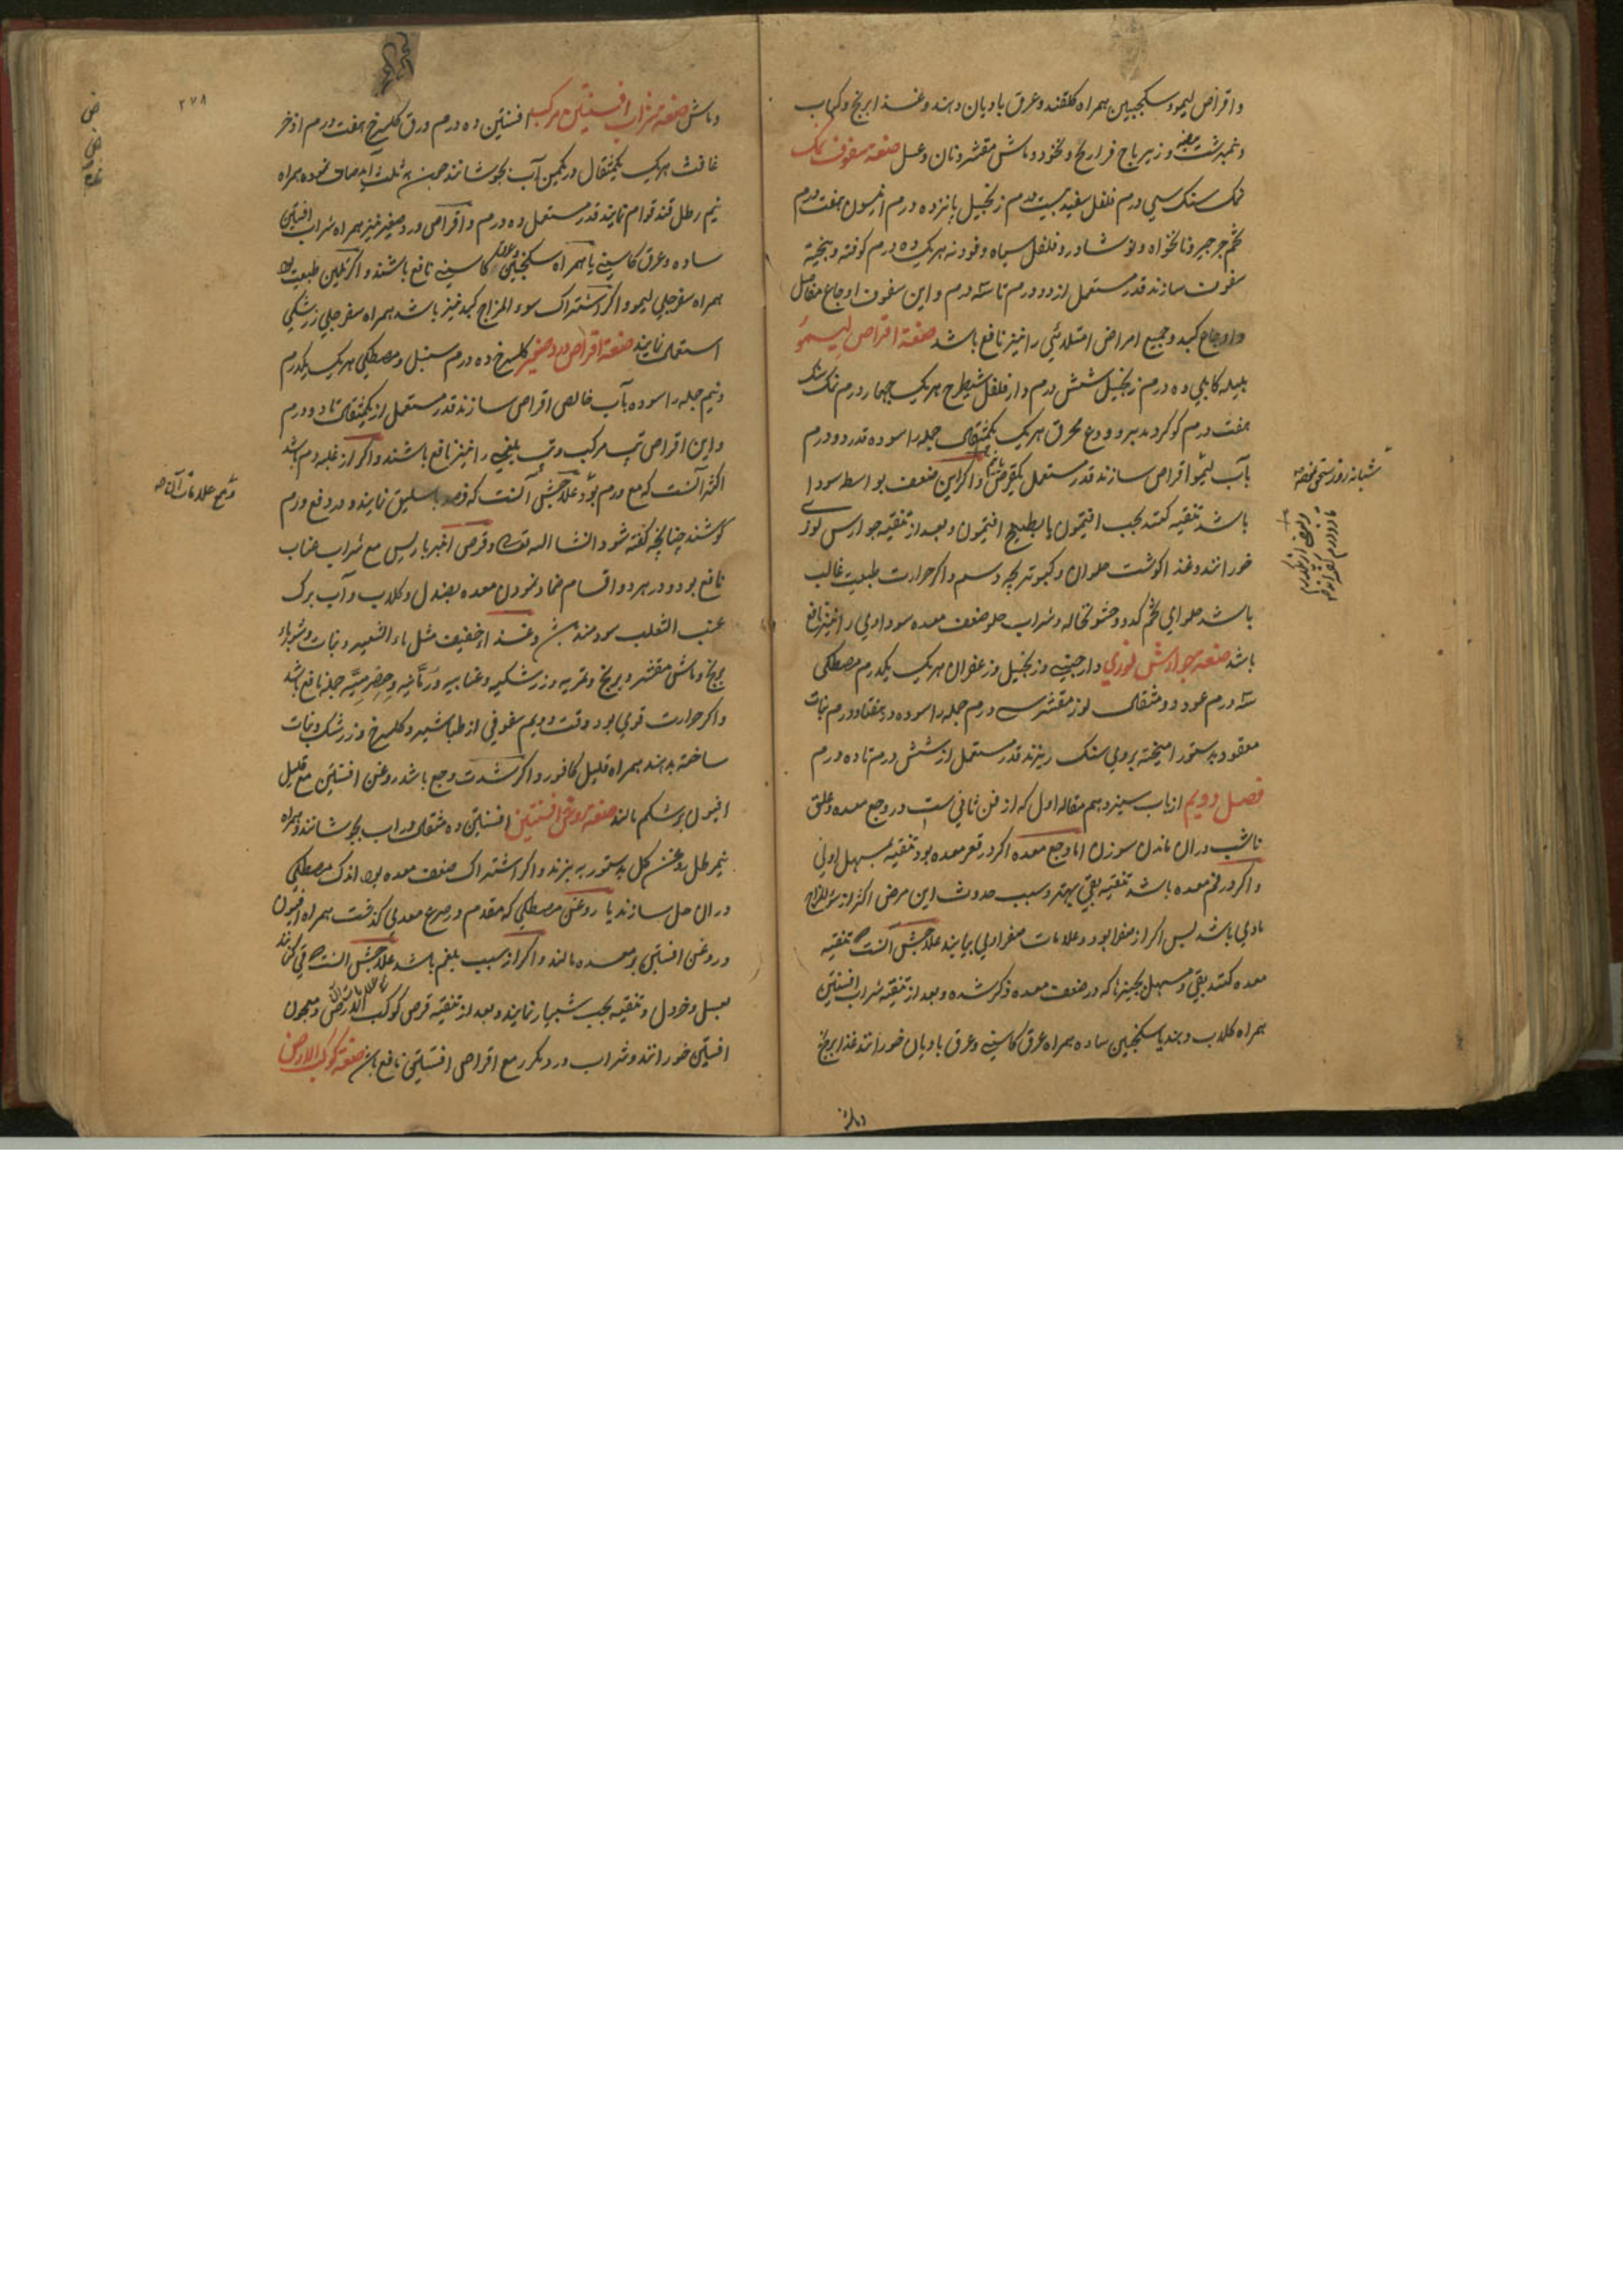 و اقراص لیمو و سکنجبین همراه کلقند و عرق بادیان دهند و غذا برنج و کباب
و نمبرشت بیضه و زیرباج فراریج و نخود و ماش مقشر و نان و عسل صنعة سفوف نمک
نمک سنک سی درم فلفل سفید بیست درم زنجبیل پانزده درم انیسون هفت درم
تخم جرجیر و نانخواه و نوشادر و فلفل سیاه و فودنه هریک ده درم کوفته و بیخته
سفوف سازند قدر مستعمل از دو درم تا سه درم و این سفوف اوجاع مفاصل
و اوجاع کبد و جمیع امراض امتلائی را نیز نافع باشد صنعة اقراص لیمو
هلیله کابلی ده درم زنجبیل شش درم دار فلفل شیطرج هریک چهار درم نمک سنک
هفت درم کوکرد مدبر و ودع محرق هریک یکمثقال جمله را سوده قدر دو درم
بآب لیمو اقراص سازند قدر مستعمل یکقرص و اکر این ضعف بواسطه سودا
باشد تنقیه کنند بحب افتیمون یا بطبیخ افتیمون و بعد از تنقیه جوارش لوزی
خورانند و غذا کوشت حلوان و کبوتر بچه و سم و اکر حرارت طبیعت غالب
باشد حلوای تخم کدو و حشو نخاله و شراب حلو ضعف معده سوداوی را نیز نافع
باشد صنعة جوارش لوزی دارچینی و زنجبیل و زعفران هریک یکدرم مصطکی
سه درم عود دو مثقال لوز مقشر سی درم جمله را سوده در هفتاد درم نبات
معقود بدستور امیخته بروی سنک ریزند قدر مستعمل از شش درم تا ده درم
فصل دویم از باب سیزدهم مقاله اول که از فن ثانی ست در وجع معده و علق
ناشب دران ماندن سوزن اما وجع معده اکر در قعر معده بود تنقیه بمسهل اولی
و اکر در فم معده باشد تنقیه بقی بهتر و سبب حدوث این مرض اکثر از سوء المزاج
مادی باشد پس اکر از صفرا بود و علامات صفراوی بیایند علاجش آنست که تنقیه
معده کنند بقی و مسهل بچیزها که در ضعف معده ذکر شده و بعد از تنقیه شراب افسنتین
همراه کلاب دهند یا سکنجبین ساده همراه عرق کاسنی و عرق بادیان خورانند غذا برنج
و ماش
شبانه روز
و ماش صنعة شراب افسنتین مرکب افسنتین ده درم ورق کلسرخ هفت درم اذخر
غافث هریک یکمثقال در یکمن آب بجوشانند چون به ثلث آید صاف نموده همراه
نیم رطل قند قوام نمایند قدر مستعمل ده درم و اقراص ورد صغیر نیز همراه شراب افسنتین
ساده و عرق کاسنی یا همراه سکنجبین کاسنی نافع باشند و اکر تلیین طبیعت بود
همراه سفرجلی لیمو و اکر اشتراک سوء المزاج کبد نیز باشد همراه سفرجلی زرشکی
استعمال نمایند صنعة اقراص ورد صغیر کلسرخ ده درم سنبل و مصطکی هریک یکدرم
و نیم جمله را سوده بآب خالص اقراص سازند قدر مستعمل از یکمثقال تا دو درم
و این اقراص تب مرکب و تب بلغمی را نیز نافع باشند و اکر از غلبه دم باشد
اکثر آنست که مع ورم بود علاجش آنست که فصد باسلیق نمایند و در دفع ورم
کوشند چنانچه کفته شود انشا الله تعالی و قرص امبرباریس مع شراب عناب
نافع بود و در هر دو اقسام ضماد نمودن معده بصندل و کلاب و آب برک
عنب الثعلب سودمند باشد و غذا خفیف مثل ماء الشعیر و نبات و شوربا
برنج و ماش مقشر و برنج و تمریه و زرشکیه و عنابیه و رمانیه و حصرمیه جمله نافع باشد
و اکر حرارت قوی بود وقت دویم سفوفی از طباشیر و کلسرخ و زرشک و نبات
ساخته بدهند همراه قلیل کافور و اکر شدت وجع باشد روغن افسنتین مع قلیل
افیون بر شکم مالند صنعة روغن افسنتین افسنتین ده مثقال در اب بجوشانند و همراه
نیم رطل روغن کل بدستور به پزند و اکر اشتراک ضعف معده بود اندک مصطکی
دران حل سازند یا روغن مصطکی که مقدم در صرع معدی کذشت همراه افیون
و روغن افسنتین بر معده مالند و اکر از سبب بلغم باشد علاجش آنست که قی کنانند
بعسل و خردل و تنقیه بحب شبیار نمایند و بعد از تنقیه قرص کوکب الارض و معجون
افسنتین خورانند و شراب ورد مکرر مع اقراص افسنتین نافع باشد صنعة کوکب الارض
و جمیع علامات آن ظاهر
۲۷۸